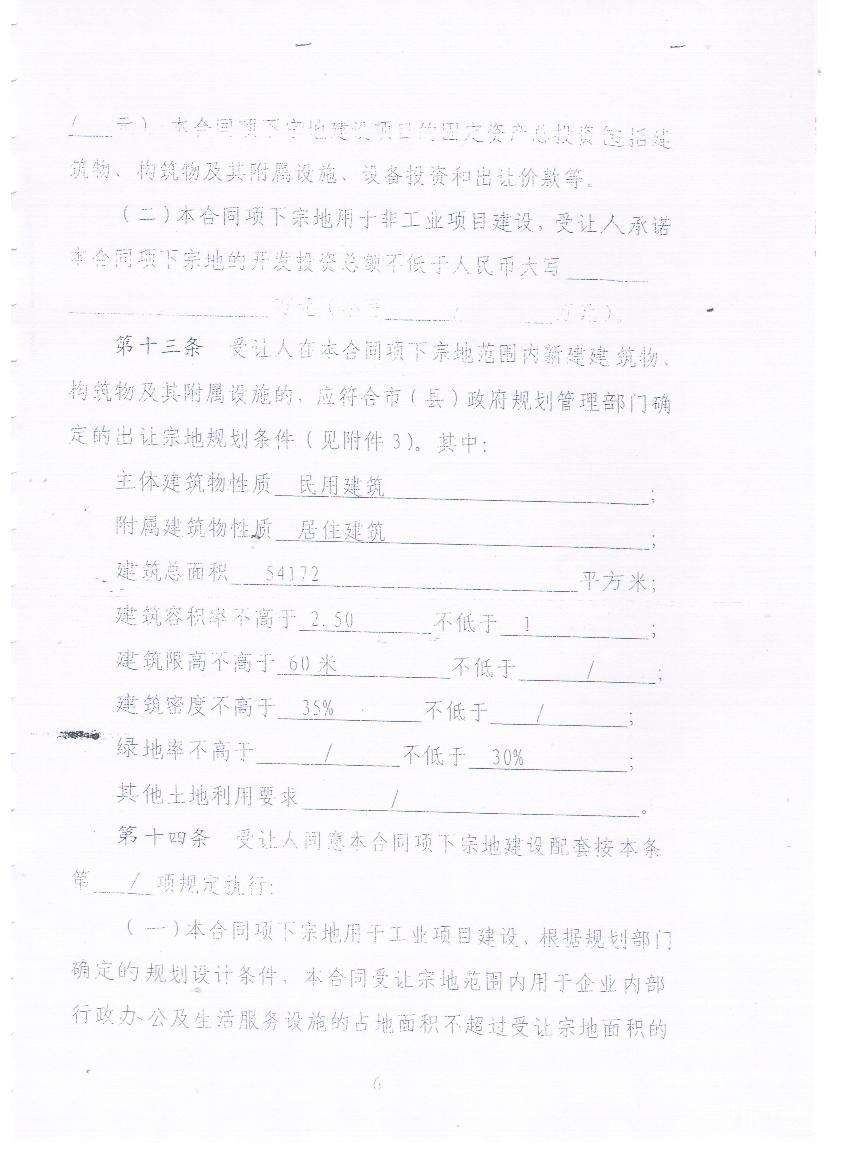 / 元)。本合同项下宗地建设项目的固定资产总投资包括建
筑物、构筑物及其附属设施、设备投资和出让价款等。
(二)本合同项下宗地用于非工业项目建设,受让人承诺
本合同项下宗地的开发投资总额不低于人民币大写
万元(小写 / 万元)。
第十三条 受让人在本合同项下宗地范围内新建建筑物、
构筑物及其附属设施的,应符合市(县)政府规划管理部门确
定的出让宗地规划条件(见附件3)。其中:
主体建筑物性质 民用建筑 ;
附属建筑物性质 居住建筑 ;
建筑总面积 54172 平方米;
建筑容积率不高于 2.50 不低于 1 ;
建筑限高不高于 60米 不低于 / ;
建筑密度不高于 35% 不低于 / ;
绿地率不高于 / 不低于 30% ;
其他土地利用要求 / 。
第十四条 受让人同意本合同项下宗地建设配套按本条
第 / 项规定执行:
(一)本合同项下宗地用于工业项目建设,根据规划部门
确定的规划设计条件,本合同受让宗地范围内用于企业内部
行政办公及生活服务设施的占地面积不超过受让宗地面积的
6